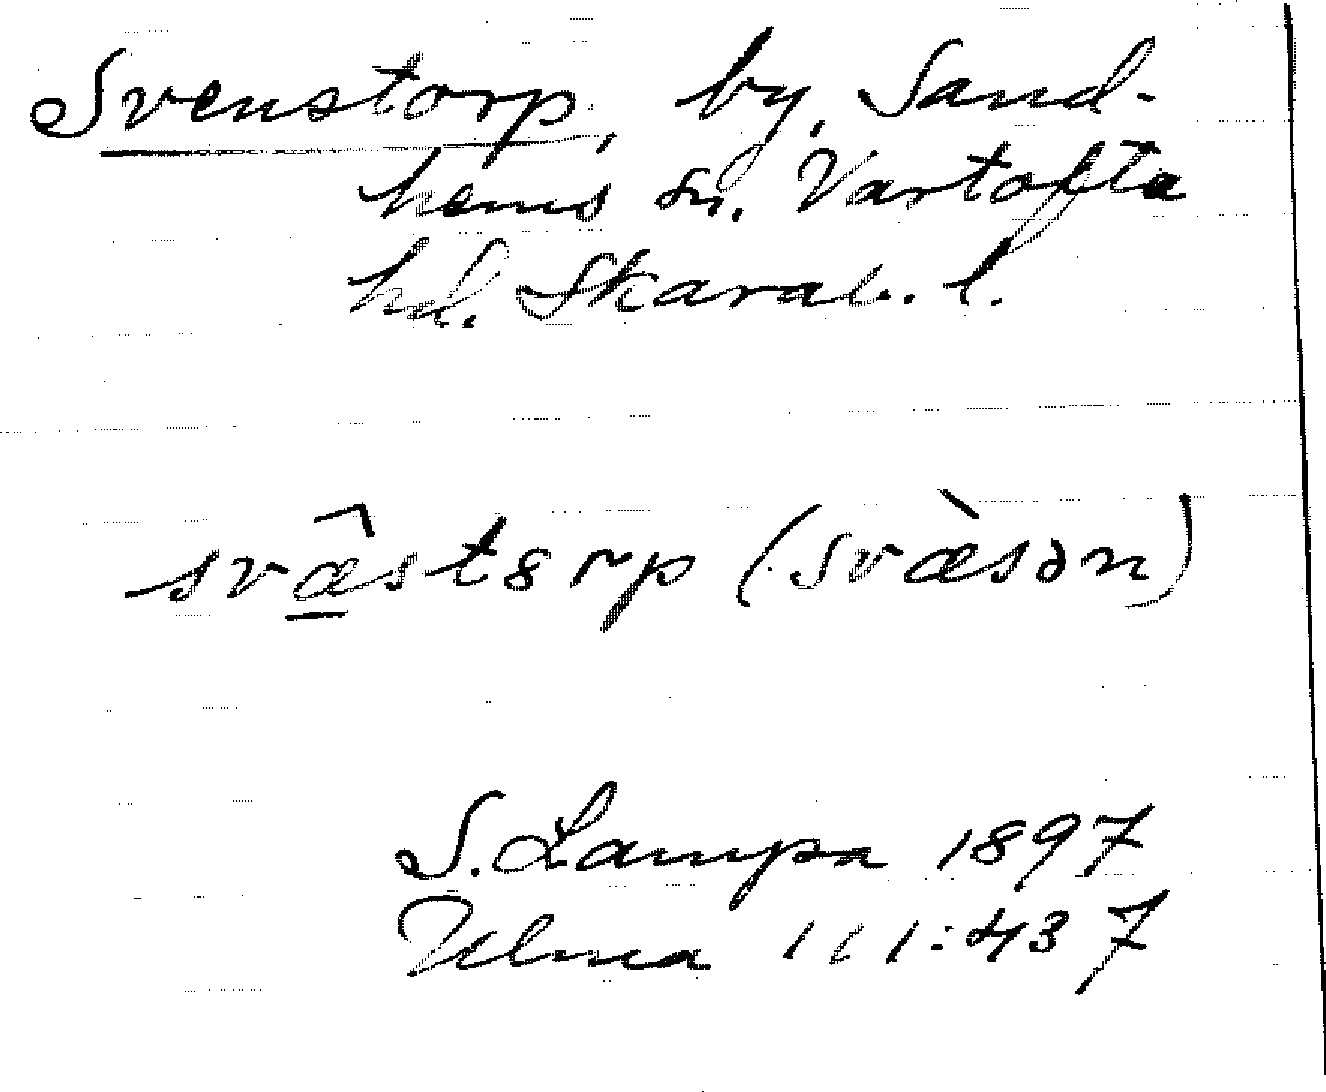 Svenstorp, by, Sand-
hems sn. Vartofta
hd. Skarab. l.
svæ̂stȣrp (svæ̀sən)
S. Lampa 1897
Ulma 111:437